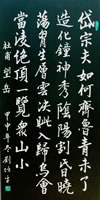 岱宗夫如何齊魯青未了
造化鍾神秀陰陽割昏曉
蕩胸生層雲決眦入歸鳥會
當凌絕頂一覽眾山小
杜甫 望岳 甲申年冬劉